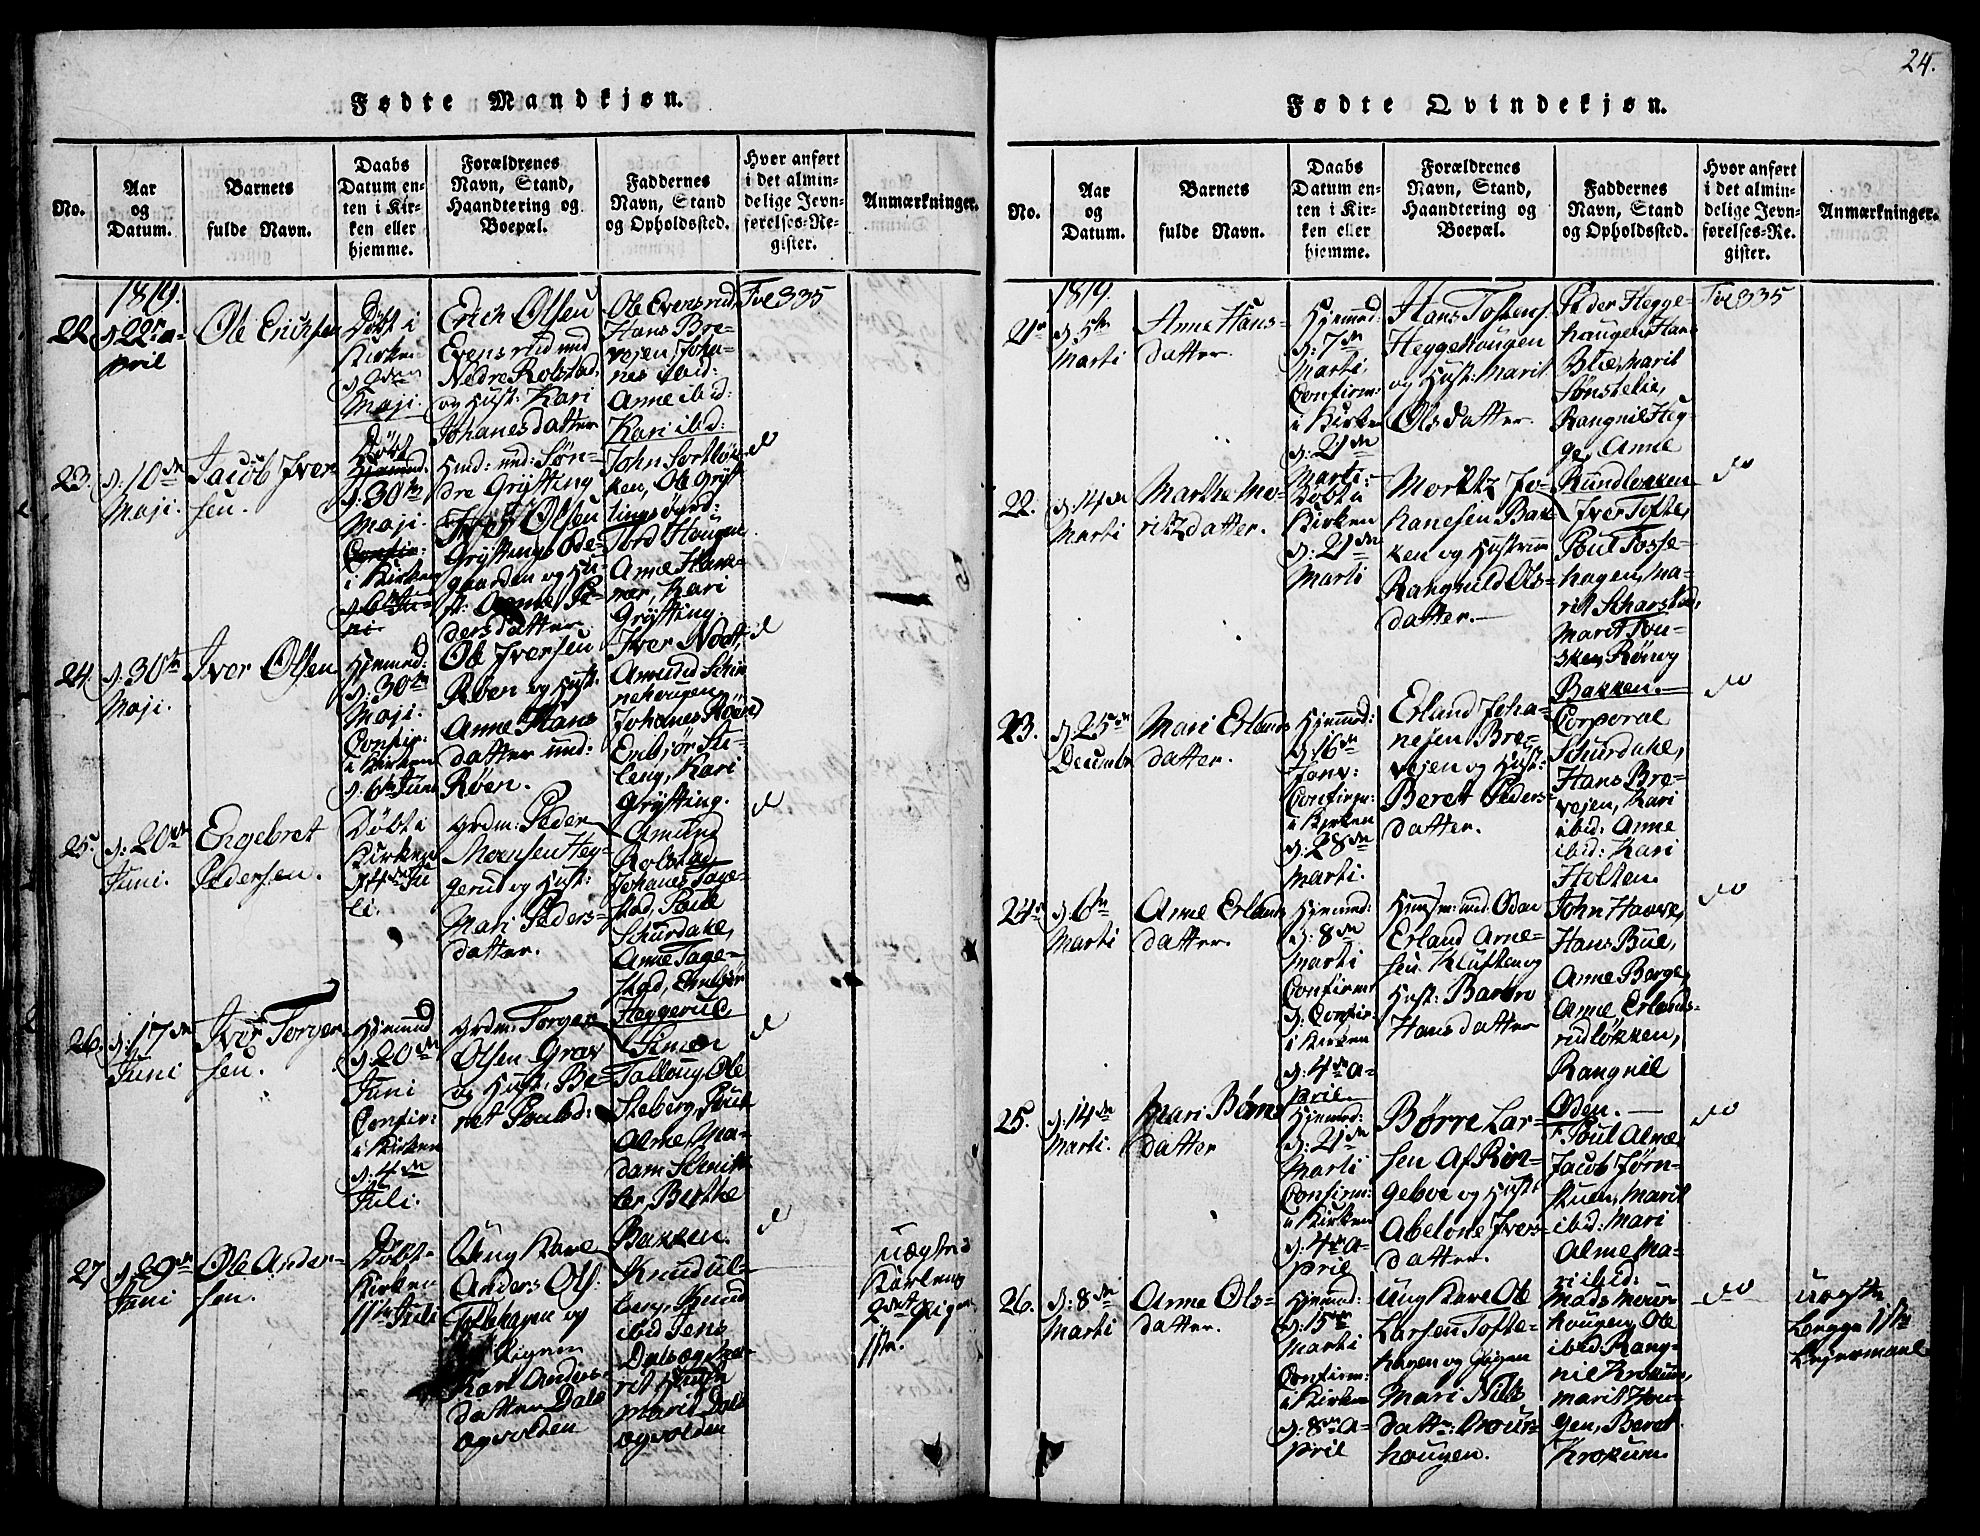 24.
Fødte Mandkjøn.
No.
Aar
og
Datum.
Barnets
fulde Navn.
Daabs
Datum en-
ten i Kir-
ken eller
hjemme.
Forældrenes
Navn, Stand,
Haandtering og
Boepæl.
Faddernes
Navn, Stand
og Opholdssted.
Hvor anført
i det almin-
delige Jevn-
førelses-Re-
gister.
Anmærkninger.
1819.
22.
d: 22n a-
pril
Ole Erichsen
Døbt i
Kirken
d 2den
Maji.
Erich Olsen
Evensrud und
Nedre Rolstad
og Hust: Kari
Johanesdatter
Ole Evensrud
Hans Bre-
vejen, Joha-
nes ibid:
Anne ibid:
Kari ibid:
Fol 335
23.
d: 10de
Maji.
Jacob Iver
sen.
Døbt
Hjemed:
d: 30te
Maji.
Confir:
i Kirken
d 6te Ju-
ni
Husm: und: Søn-
dre Grytting
Iver Olsen
Gryttings Øde-
gaarden og Hu-
st: Anne Pe-
dersdatter
John Sortløk-
ken, Ole Gryt
tingsøyrd:
Tord Haugen
Anne Harre-
mær, Kari
Gryting.
do
24.
d: 30te
Maji.
Iver Olsen
Hjemed:
d: 30te
Maji.
Confir:
i Kirken
d: 6te Juni
Ole Iversen
Røen og Hust:
Anne Hans
datter und:
Røen.
Iver Nodt,
Amund Schin
nehougen
Johanes Røen,
Enbjør Ste-
leng, Kari
Grytting.
do
25.
d: 20de
Juni.
Engebret
Pedersen.
Døbt i
Kirken
d 4de Ju
li.
Grdm: Peder
Moensen Heg-
gerud og Hust:
Mari Peders-
datter.
Amund
Rolstad
Johanes Tage-
stad, Poul
Schurdahl,
Anne Tage-
stad, Embjør
Heggerud,
do
26.
d: 17de
Juni
Iver Torger
sen.
Hjemed
d 20de
Juni
Confir:
i Kirken
d: 4de
Juli.
Grdm: Torger
Olsen Grav
og Hust: Be-
ret Poulsd:
Simen
Talloug, Ole
Steberg, Poul
Alme, Ma-
dam Schmitt
ler, Berthe
Bakken.
do
27
d 29de
Juni
Ole Ander-
sen.
Døbt
Kirken
11te Juli
Ung Karl
Anders Ols:
Toftehagen og
Pigen
Kari Anders-
datter Dals
Ogvolden
Knud Ul-
berg, Knud
ibid Jens
Dalsog, Ma-
rit
Marit Dals
Ogvolden
do
Uægte
Karlens
2det Pigens
1ste.
Fødte Qvindekjøn.
No.
Aar
og
Datum.
Barnets
fulde Navn.
Daabs
Datum en-
ten i Kir-
ken eller
hjemme.
Forældrenes
Navn, Stand,
Haandtering og
Boepæl.
Faddernes
Navn, Stand
og Opholdssted.
Hvor anført
i det almin-
delige Jevn-
førelses-Re-
gister.
Anmærkninger.
1819.
21.
d 5te
Marti
Anne Hans-
datter.
Hjemed:
d: 7de
Marti,
Confirm:
i Kirken
d: 21de
Marti.
Hans Tostens:
Heggehougen
og Hust: Marit
Olsdatter.
Peder Hegge-
haugen, Hans
Blie, Marit
Sønstelie,
Rangnil Heg-
ge, Anne
Rundlokken
Fol 335
22.
d: 14de
Marti
Marthe Mo-
ritzdatter.
Døbt i
Kirken
d: 21de
Marti
Moritz Jo-
hanesen Bak-
ken og Hustrue
Rangnild Ols-
datter.
Iver Tofte,
Poul Fosse-
hagen, Ma-
rit Scharstad,
Marit Tou-
sken, Rønog
Bakken.
do
23.
d: 25de
Decembr
Mari Erlands
datter.
Hjemed:
d: 16de
Janv:
Confirm:
i Kirken
d: 28de
Marti.
Erland Joha-
nesen Bre-
vejen og Hust:
Beret Peders-
datter.
Corporal
Schurdahl,
Hans Bre-
vejen, Kari
ibid: Anne
ibid: Kari
Holten.
do
24.
d 6te
Marti
Anne Erlands
datter.
Hjemed:
d: 8de
Marti
Confirm:
d: Confir:
i Kirken
d: 4de a-
pril
Husm: und: Oden
Erland Arne-
sen Kluften og
Hust: Barbro
Hansdatter
John Haave,
Hans Bue,
Anne Barge,
Anne Erlands-
rudløkken,
Rangnil
Oden.
do
25.
d: 14de
Marti.
Mari Børres
datter
Hjemed:
d: 21de
Marti
Confirm:
i Kirken
d: 4de a-
pril
Børre Lar-
sen af Rin-
geboe og Hust:
Abelone Ivers-
datter.
Poul Alme,
Jacob Jørn-
stuen, Marit
ibid: Mari
Alme Ma-
ri ibid:
do
26.
d: 8de
Marti
Anne Ols-
datter.
Hjemed:
d: 15de
Marti
Confirm:
i Kirken
d: 8de A-
pril
Ung Karl Ole
Larsen Tofte-
hagen og Pigen
Mari Niels
datter: Mour-
hougen.
Mads Mour-
hougen, Ole
ibid Rang-
nil Krokum,
Marit Hou-
gen, Beret
Krokum
do
Uægte
begge 1ste
Lejermaal